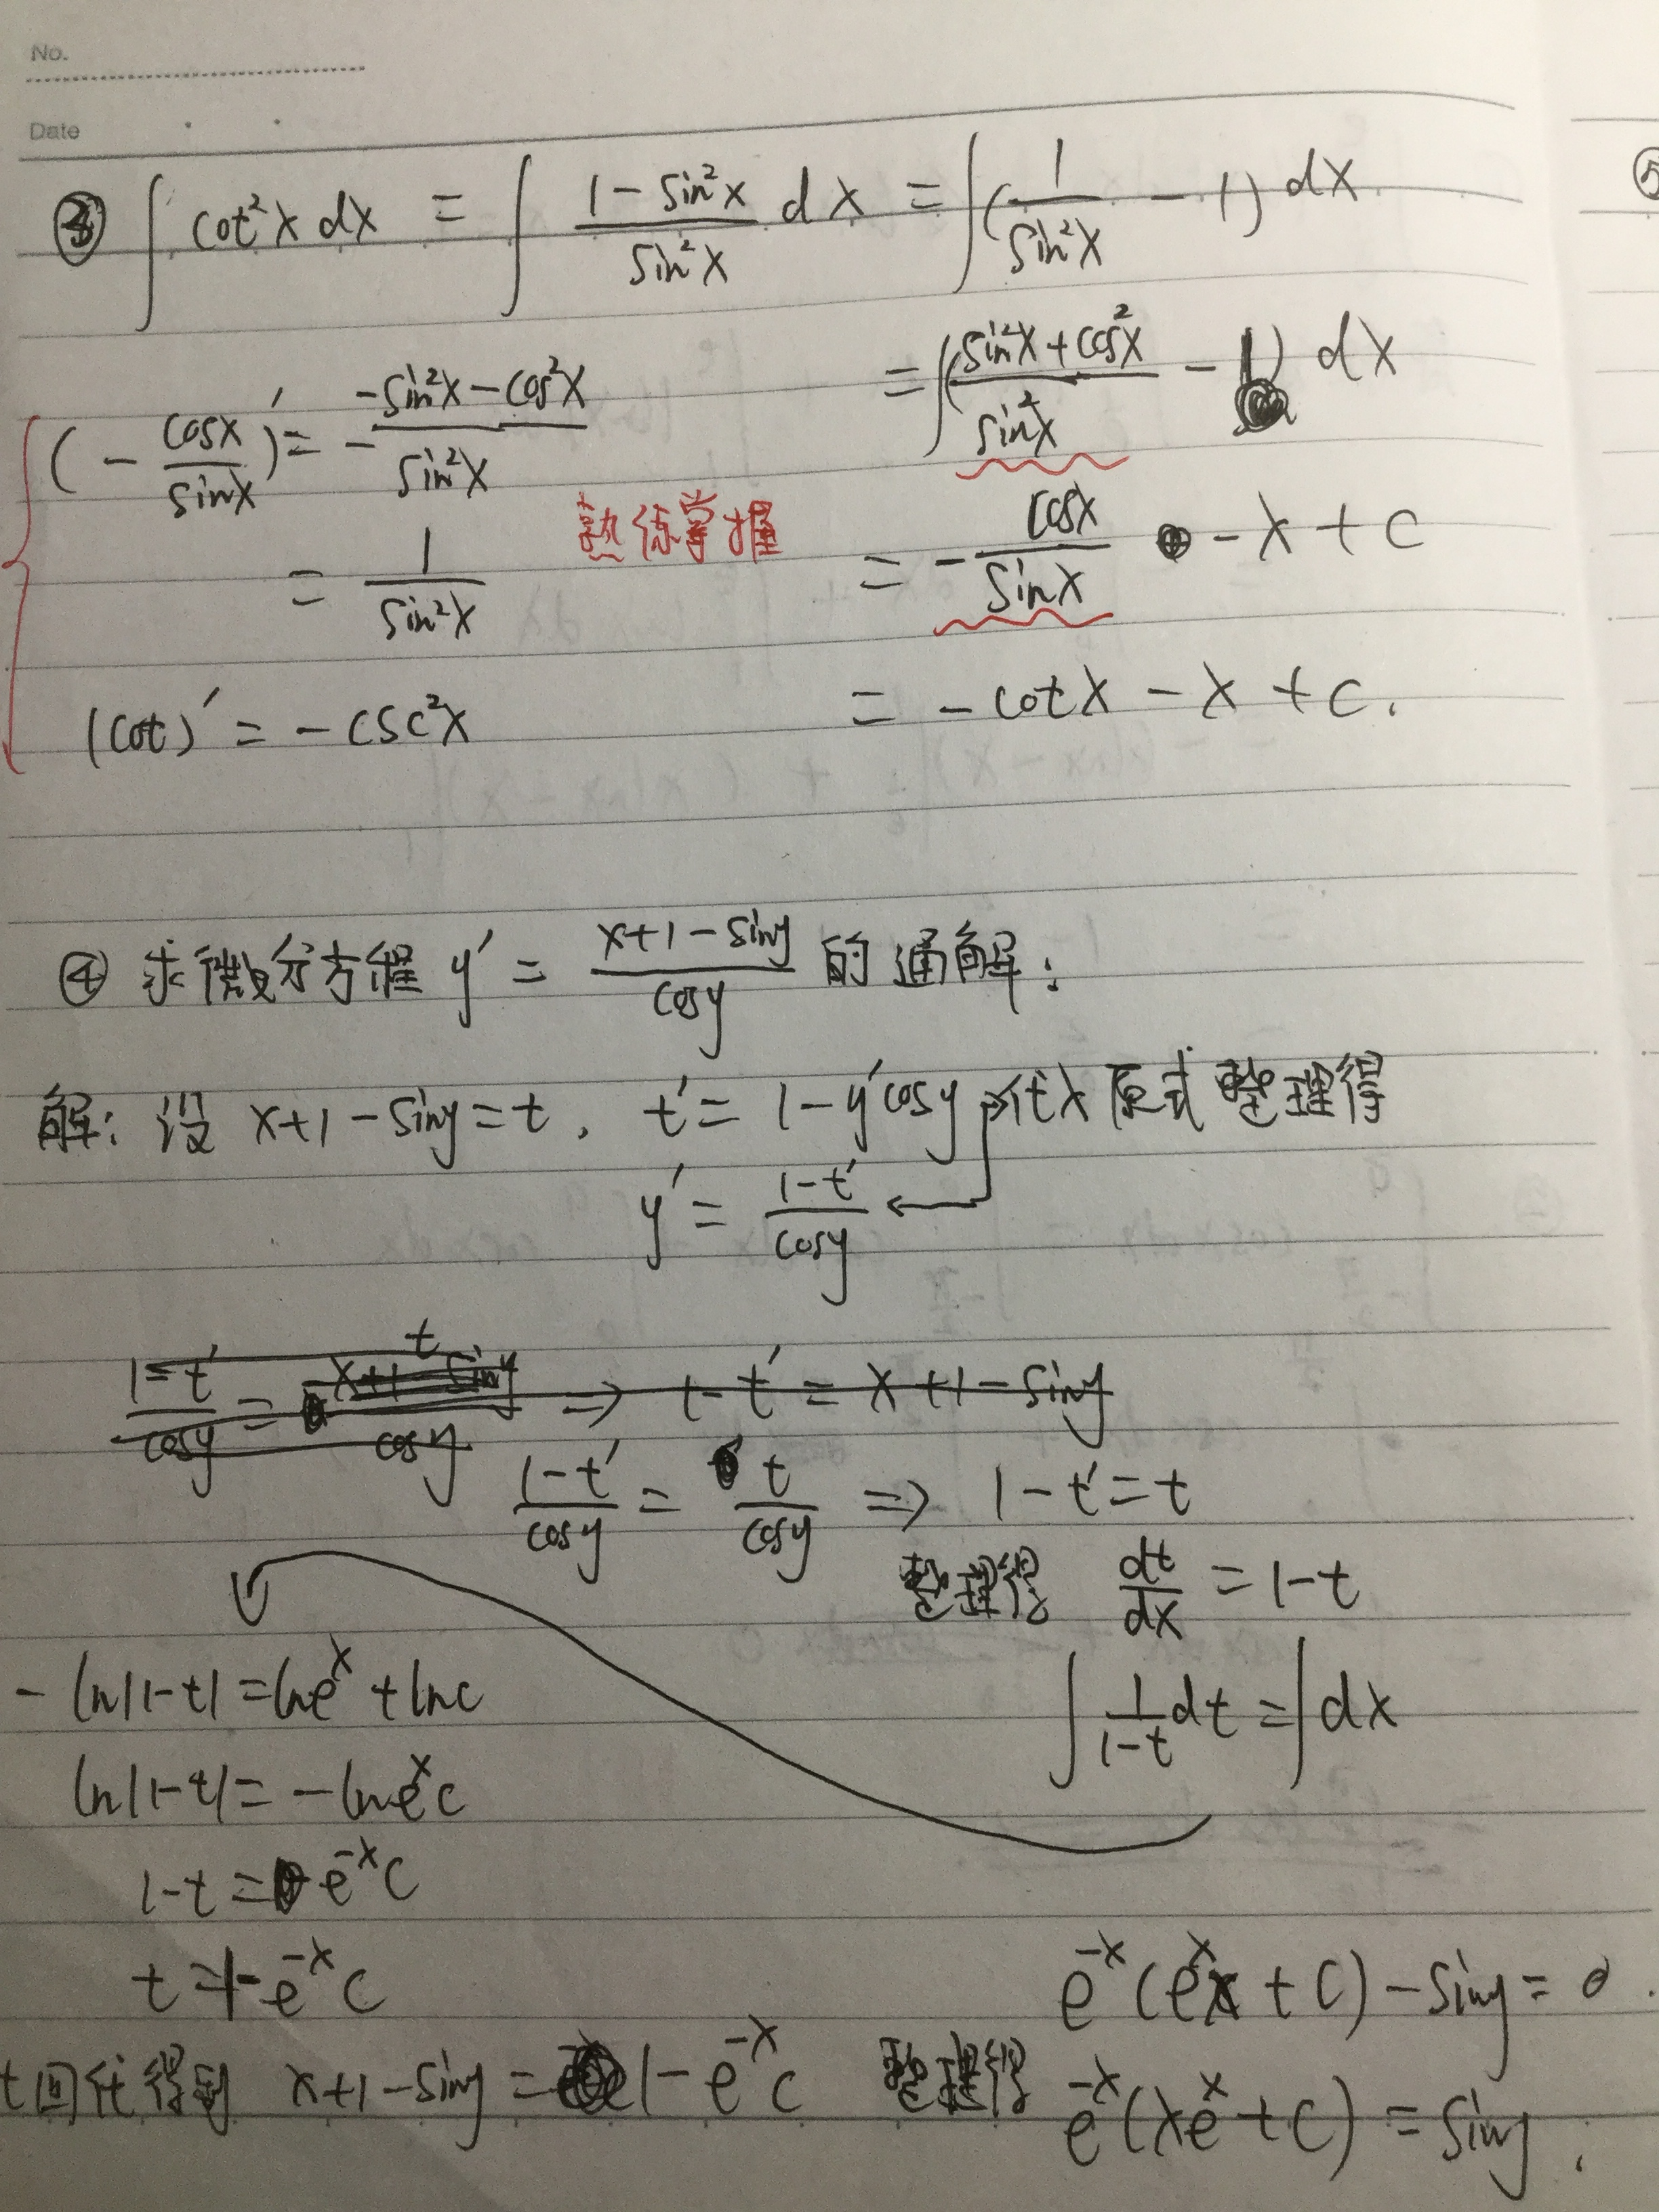 No.
Date
③ ∫ cot²x dx = ∫ (1 - sin²x)/(sin²x) dx = ∫ (1/(sin²x) - 1) dx
= ∫ ((sin²x + cos²x)/(sin²x) - 1) dx
(- cosx/sinx)' = - (-sin²x - cos²x)/(sin²x)
熟练掌握
= - cosx/sinx - x + C
= 1/(sin²x)
(cot)' = - csc²x
= - cotx - x + C.
④ 求微分方程 y' = (x+1-siny)/cosy 的通解:
解: 设 x+1-siny = t, t' = 1 - y'cosy 代入原式整理得
y' = (1-t')/cosy
(1-t')/cosy = t/cosy ⇒ 1-t' = x+1-siny
(1-t')/cosy = t/cosy ⇒ 1-t' = t
整理得 dt/dx = 1-t
∫ 1/(1-t) dt = ∫ dx
- ln|1-t| = lneˣ + lnc
ln|1-t| = - lneˣc
1-t = e⁻ˣC
t = 1 - e⁻ˣC
t回代得到 x+1-siny = 1 - e⁻ˣC 整理得
e⁻ˣ(eˣx + C) - siny = 0.
e⁻ˣ(xeˣ + C) = siny.
⑤